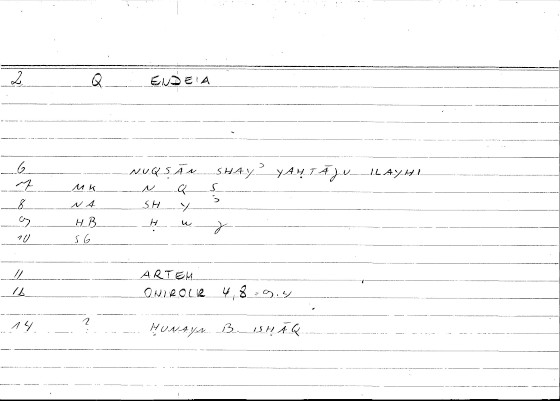 2 Q ENDEIA
6 NUQṢĀN SHAYʾ YAḤTĀJU ILAYHI
7 MK N Q Ṣ
8 NA SH Y ʾ
9 HB Ḥ W J
10 SG
11 ARTEM
12 ONIROCR 4,8
14 ? ḤUNAYN B ISḤĀQ